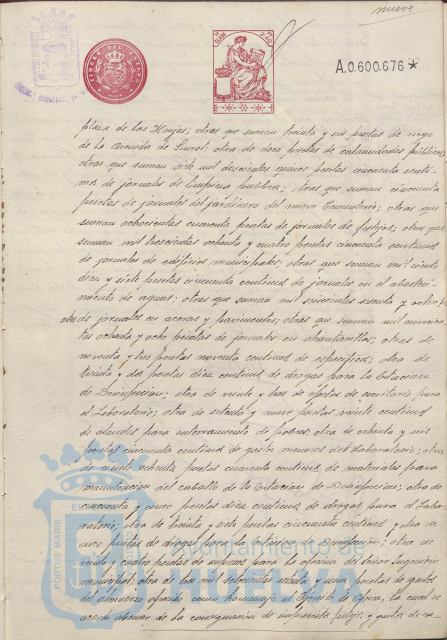 nueve
A.0.600.676★
plaza de las Monjas; otras que suman treinta y seis pesetas de riego
de la Avenida de; otra de doce pesetas de calamidades públicas;
otras que suman siete mil doscientas quince pesetas cincuenta cénti-
mos de jornales de limpieza pública; otras que suman cincuenta
pesetas de jornales del jardinero del nuevo Cementerio; otras que
suman ochocientas cuarenta pesetas de jornales de festejos; otras que
suman mil trescientas ochenta y cuatro pesetas cincuenta céntimos
de jornales de edificios municipales; otras que suman mil ciento
diez y siete pesetas cincuenta céntimos de jornales en el abasteci-
miento de aguas; otras que suman mil seiscientas sesenta y ocho
de jornales en aceras y pavimentos; otras que suman mil novecien-
tas ochenta y ocho pesetas de jornales en alcantarillas; otras de
noventa y tres pesetas noventa céntimos de específicos; otra de
treinta y dos pesetas diez céntimos de drogas para la Estación
de Desinfección; otra de veinte y tres de efectos de escritorio para
el Laboratorio; otra de setenta y nueve pesetas veinte céntimos
de para enterramiento de pobres; otra de ochenta y seis
pesetas cincuenta céntimos de gastos menores del Laboratorio; otra
de ciento ochenta pesetas cuarenta céntimos de materiales para
manutención del caballo de la Estación de Desinfección; otra de
cincuenta y cinco pesetas diez céntimos de drogas para el Labo-
ratorio; otra de treinta y siete pesetas cincuenta céntimos y otra de
once pesetas de drogas para la Estación de Desinfección; otra de
veinte y cuatro pesetas de impresos para la oficina del Señor Ingeniero
municipal; otra de tres mil setecientas ochenta y una pesetas de gastos
del almuerzo ofrecido como homenaje al Ejército de África, la cual se
acordó abonar de la consignación de imprevistos, festejos y gastos de re
PORTUS MARIS
Ayuntamiento de